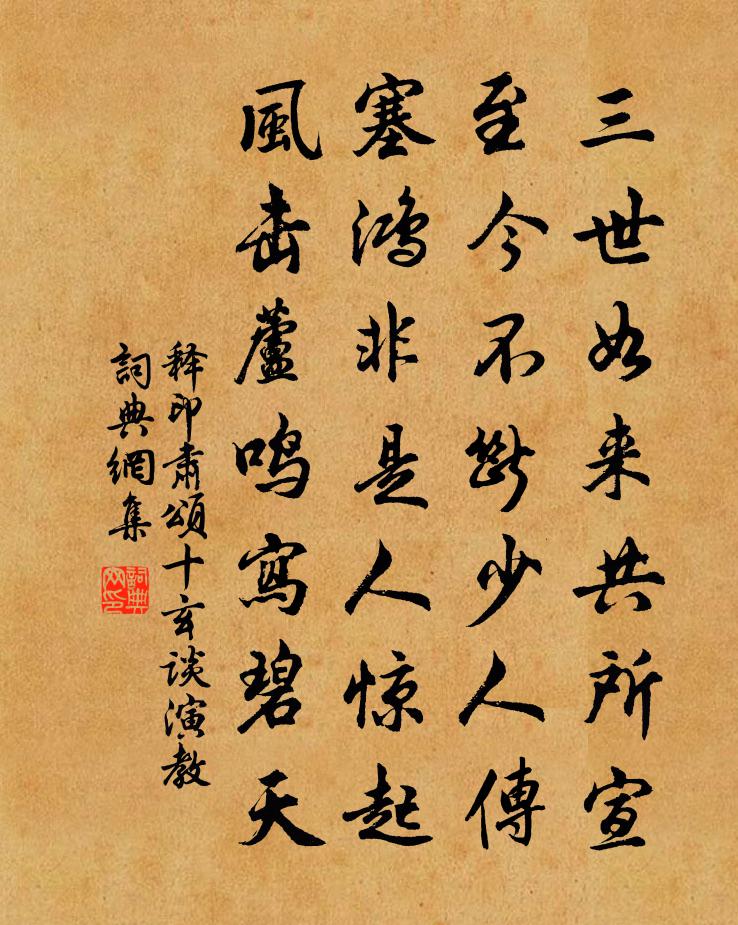 三世如来共所宣
至今不断少人傳
塞鸿非是人惊起
風击蘆鸣寫碧天
释印肃頌十玄谈演教
詞典網集
詞典
网印